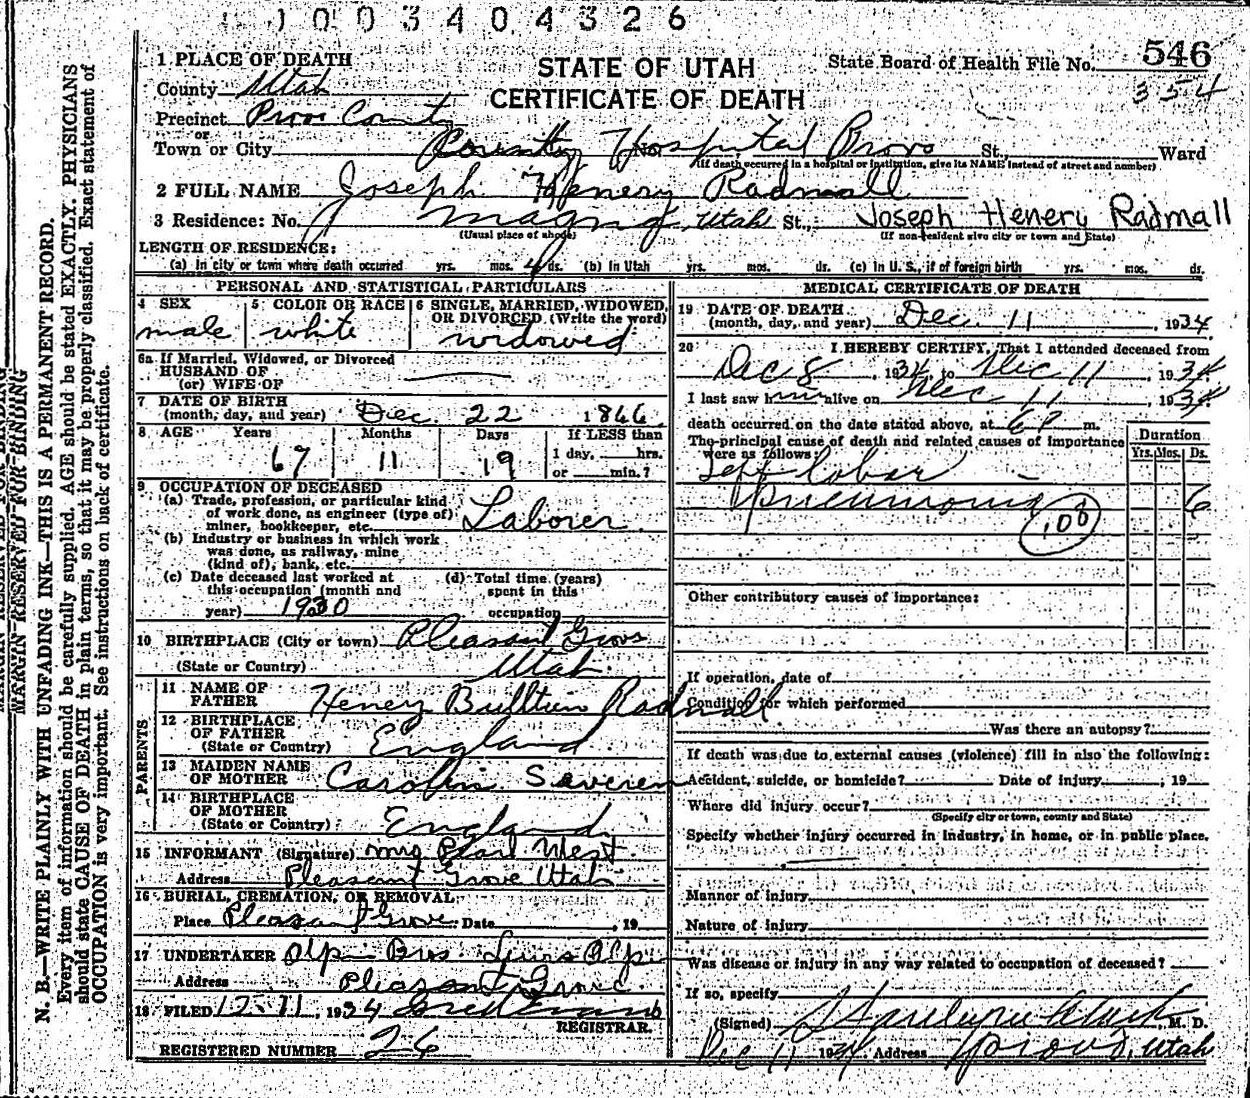 1003404326
1 PLACE OF DEATH
STATE OF UTAH
State Board of Health File No. 546
County Utah
CERTIFICATE OF DEATH
354
Precinct Provo County
or
Town or City County Hospital Provo St., Ward
No.
(If death occurred in a hospital or institution, give its NAME instead of street and number)
2 FULL NAME Joseph Henery Radmall
3 Residence: No. Magna, Utah St., Joseph Henery Radmall
(Usual place of abode)
(If non-resident give city or town and State)
LENGTH OF RESIDENCE:
(a) In city or town where death occurred yrs. mos. 4 ds. (b) In Utah yrs. mos. ds. (c) In U. S., if of foreign birth yrs. mos. ds.
PERSONAL AND STATISTICAL PARTICULARS
4 SEX
male
5 COLOR OR RACE
white
6 SINGLE, MARRIED, WIDOWED, OR DIVORCED (Write the word)
widowed
6a If Married, Widowed, or Divorced
HUSBAND OF
(or) WIFE OF
7 DATE OF BIRTH
(month, day, and year) Dec. 22 1866
8 AGE Years Months Days If LESS than
67 11 19 1 day, hrs.
or min.?
9 OCCUPATION OF DECEASED
(a) Trade, profession, or particular kind
of work done, as engineer (type of)
miner, bookkeeper, etc. Laborer
(b) Industry or business in which work
was done, as railway, mine
(kind of), bank, etc.
(c) Date deceased last worked at
this occupation (month and
year) 1930
(d) Total time (years)
spent in this
occupation
10 BIRTHPLACE (City or town) Pleasant Grove
(State or Country) Utah
PARENTS
11 NAME OF
FATHER Henery Radmall
12 BIRTHPLACE
OF FATHER
(State or Country) England
13 MAIDEN NAME
OF MOTHER Severen
14 BIRTHPLACE
OF MOTHER
(State or Country) England
15 INFORMANT (Signature) Mrs Pearl West
Address Pleasant Grove Utah
16 BURIAL, CREMATION, OR REMOVAL
Place Pleasant Grove Date , 19
17 UNDERTAKER Bros.
Address Pleasant Grove
18 FILED 12-11, 1934
REGISTRAR.
REGISTERED NUMBER 26
MEDICAL CERTIFICATE OF DEATH
19 DATE OF DEATH
(month, day, and year) Dec. 11, 1934
20 I HEREBY CERTIFY, That I attended deceased from
Dec 8, 1934, to Dec 11, 1934
I last saw him alive on Dec 11, 1934
death occurred on the date stated above, at 6 P m.
The principal cause of death and related causes of importance
were as follows:
Duration
Yrs. Mos. Ds.
Left lobar
pneumonia 6
108
Other contributory causes of importance:
If operation, date of
Condition for which performed
Was there an autopsy?
If death was due to external causes (violence) fill in also the following:
Accident, suicide, or homicide? Date of injury , 19
Where did injury occur?
(Specify city or town, county and State)
Specify whether injury occurred in industry, in home, or in public place.
Manner of injury
Nature of injury
Was disease or injury in any way related to occupation of deceased?
If so, specify
(Signed) , M. D.
Dec 11 1934 Address Provo, Utah
MARGIN RESERVED FOR BINDING
N. B.—WRITE PLAINLY WITH UNFADING INK—THIS IS A PERMANENT RECORD.
Every item of information should be carefully supplied. AGE should be stated EXACTLY. PHYSICIANS
should state CAUSE OF DEATH in plain terms, so that it may be properly classified. Exact statement of
OCCUPATION is very important. See instructions on back of certificate.